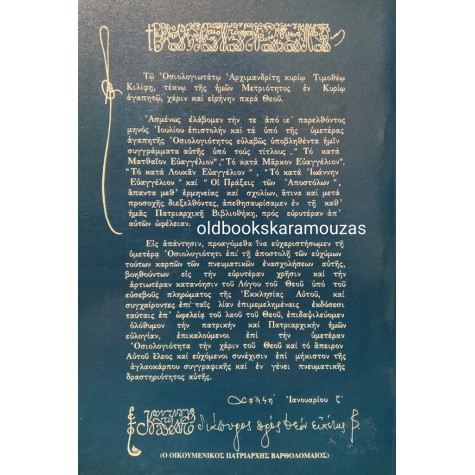 Τῷ Ὁσιολογιωτάτῳ Ἀρχιμανδρίτῃ κυρίῳ Τιμοθέῳ
Κιλίφῃ, τέκνῳ τῆς ἡμῶν Μετριότητος ἐν Κυρίῳ
ἀγαπητῷ, χάριν καὶ εἰρήνην παρὰ Θεοῦ.
Ἀσμένως ἐλάβομεν τήν τε ἀπό ιε΄ παρελθόντος
μηνός Ἰουλίου ἐπιστολήν καί τά ὑπό τῆς ὑμετέρας
ἀγαπητῆς Ὁσιολογιότητος εὐλαβῶς ὑποβληθέντα ἡμῖν
συγγράμματα αὐτῆς ὑπό τούς τίτλους ,"Τό κατά
Ματθαῖον Εὐαγγέλιον","Τό κατά Μᾶρκον Εὐαγγέλιον",
"Τό κατά Λουκᾶν Εὐαγγέλιον" , "Τό κατά Ἰωάννην
Εὐαγγέλιον " καί " Οἱ Πράξεις τῶν Ἀποστόλων" ,
ἅπαντα μεθ' ἑρμηνείας καί σχολίων, ἅτινα καί μετά
προσοχῆς διεξελθόντες, ἀπεθησαυρίσαμεν ἐν τῇ καθ'
ἡμᾶς Πατριαρχικῇ Βιβλιοθήκῃ, πρός εὐρυτέραν ἀπ'
αὐτῶν ὠφέλειαν.
oldbookskaramouzas
Εἰς ἀπάντησιν, προαγόμεθα ἵνα εὐχαριστήσωμεν τῇ
ὑμετέρᾳ Ὁσιολογιότητι ἐπί τῇ ἀποστολῇ τῶν εὐχύμων
τούτων καρπῶν τῶν πνευματικῶν ἐνασχολήσεων αὐτῆς,
βοηθούντων εἰς τήν εὐρυτέραν χρῆσιν καί τήν
ἀρτιωτέραν κατανόησιν τοῦ Λόγου τοῦ Θεοῦ ὑπό τοῦ
εὐσεβοῦς πληρώματος τῆς Ἐκκλησίας Αὐτοῦ, καί
συγχαίροντες ἐπί ταῖς λίαν ἐπιμεμελημέναις ἐκδόσεσι
ταύταις ἐπ' ὠφελείᾳ τοῦ λαοῦ τοῦ Θεοῦ, ἐπιδαψιλεύομεν
ὁλόθυμον τήν πατρικήν καί Πατριαρχικήν ἡμῶν
εὐλογίαν, ἐπικαλούμενοι ἐπί τήν ὑμετέραν
Ὁσιολογιότητα τήν χάριν τοῦ Θεοῦ καί τό ἄπειρον
Αὐτοῦ ἔλεος καί εὐχόμενοι συνέχισιν ἐπί μήκιστον τῆς
ἀγλαοκάρπου συγγραφικῆς καί ἐν γένει πνευματικῆς
δραστηριότητος αὐτῆς.
Ἰανουαρίου ζ΄
διάπυρος πρός Θεόν εὐχέτης
(Ο ΟΙΚΟΥΜΕΝΙΚΟΣ ΠΑΤΡΙΑΡΧΗΣ ΒΑΡΘΟΛΟΜΑΙΟΣ)